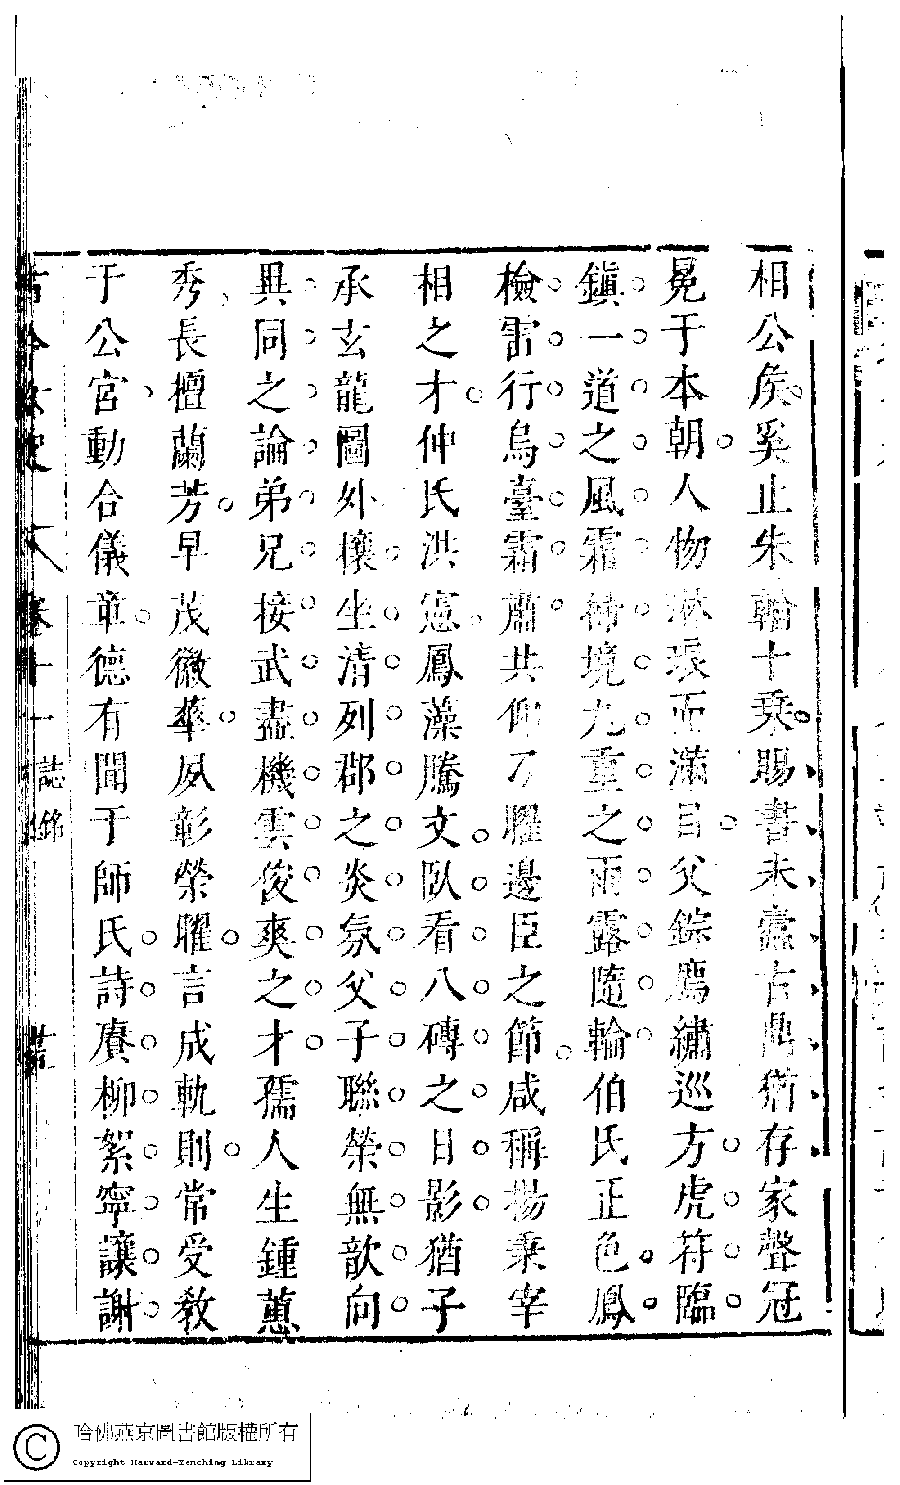 相公矦奚止朱輪十乗賜書未蠹古鼎猶存家聲冠
冕于本朝人物淋漓而滿目父錝鷹繡巡方虎符臨
鎮一道之風霜禘境九重之雨露隨輪伯氏正色鳳
檢霅行烏臺霜肅共仰乃耀邊臣之節咸稱楊秉宰
相之才仲氏洪憲鳳藻騰文臥看八磚之日影猶子
承玄龍圖外攘坐清列郡之炎氛父子聯榮無歆向
異同之論弟兄接武盡機雲俊爽之才孺人生鍾蕙
秀長檀蘭芳早茂徽華夙彰榮耀言成軌則常受教
于公宮動合儀章德有聞于師氏詩賡柳絮寧讓謝
古今女史 文 卷十一 誌銘
哈佛燕京圖書館版權所有
Copyright Harvard-Yenching Library